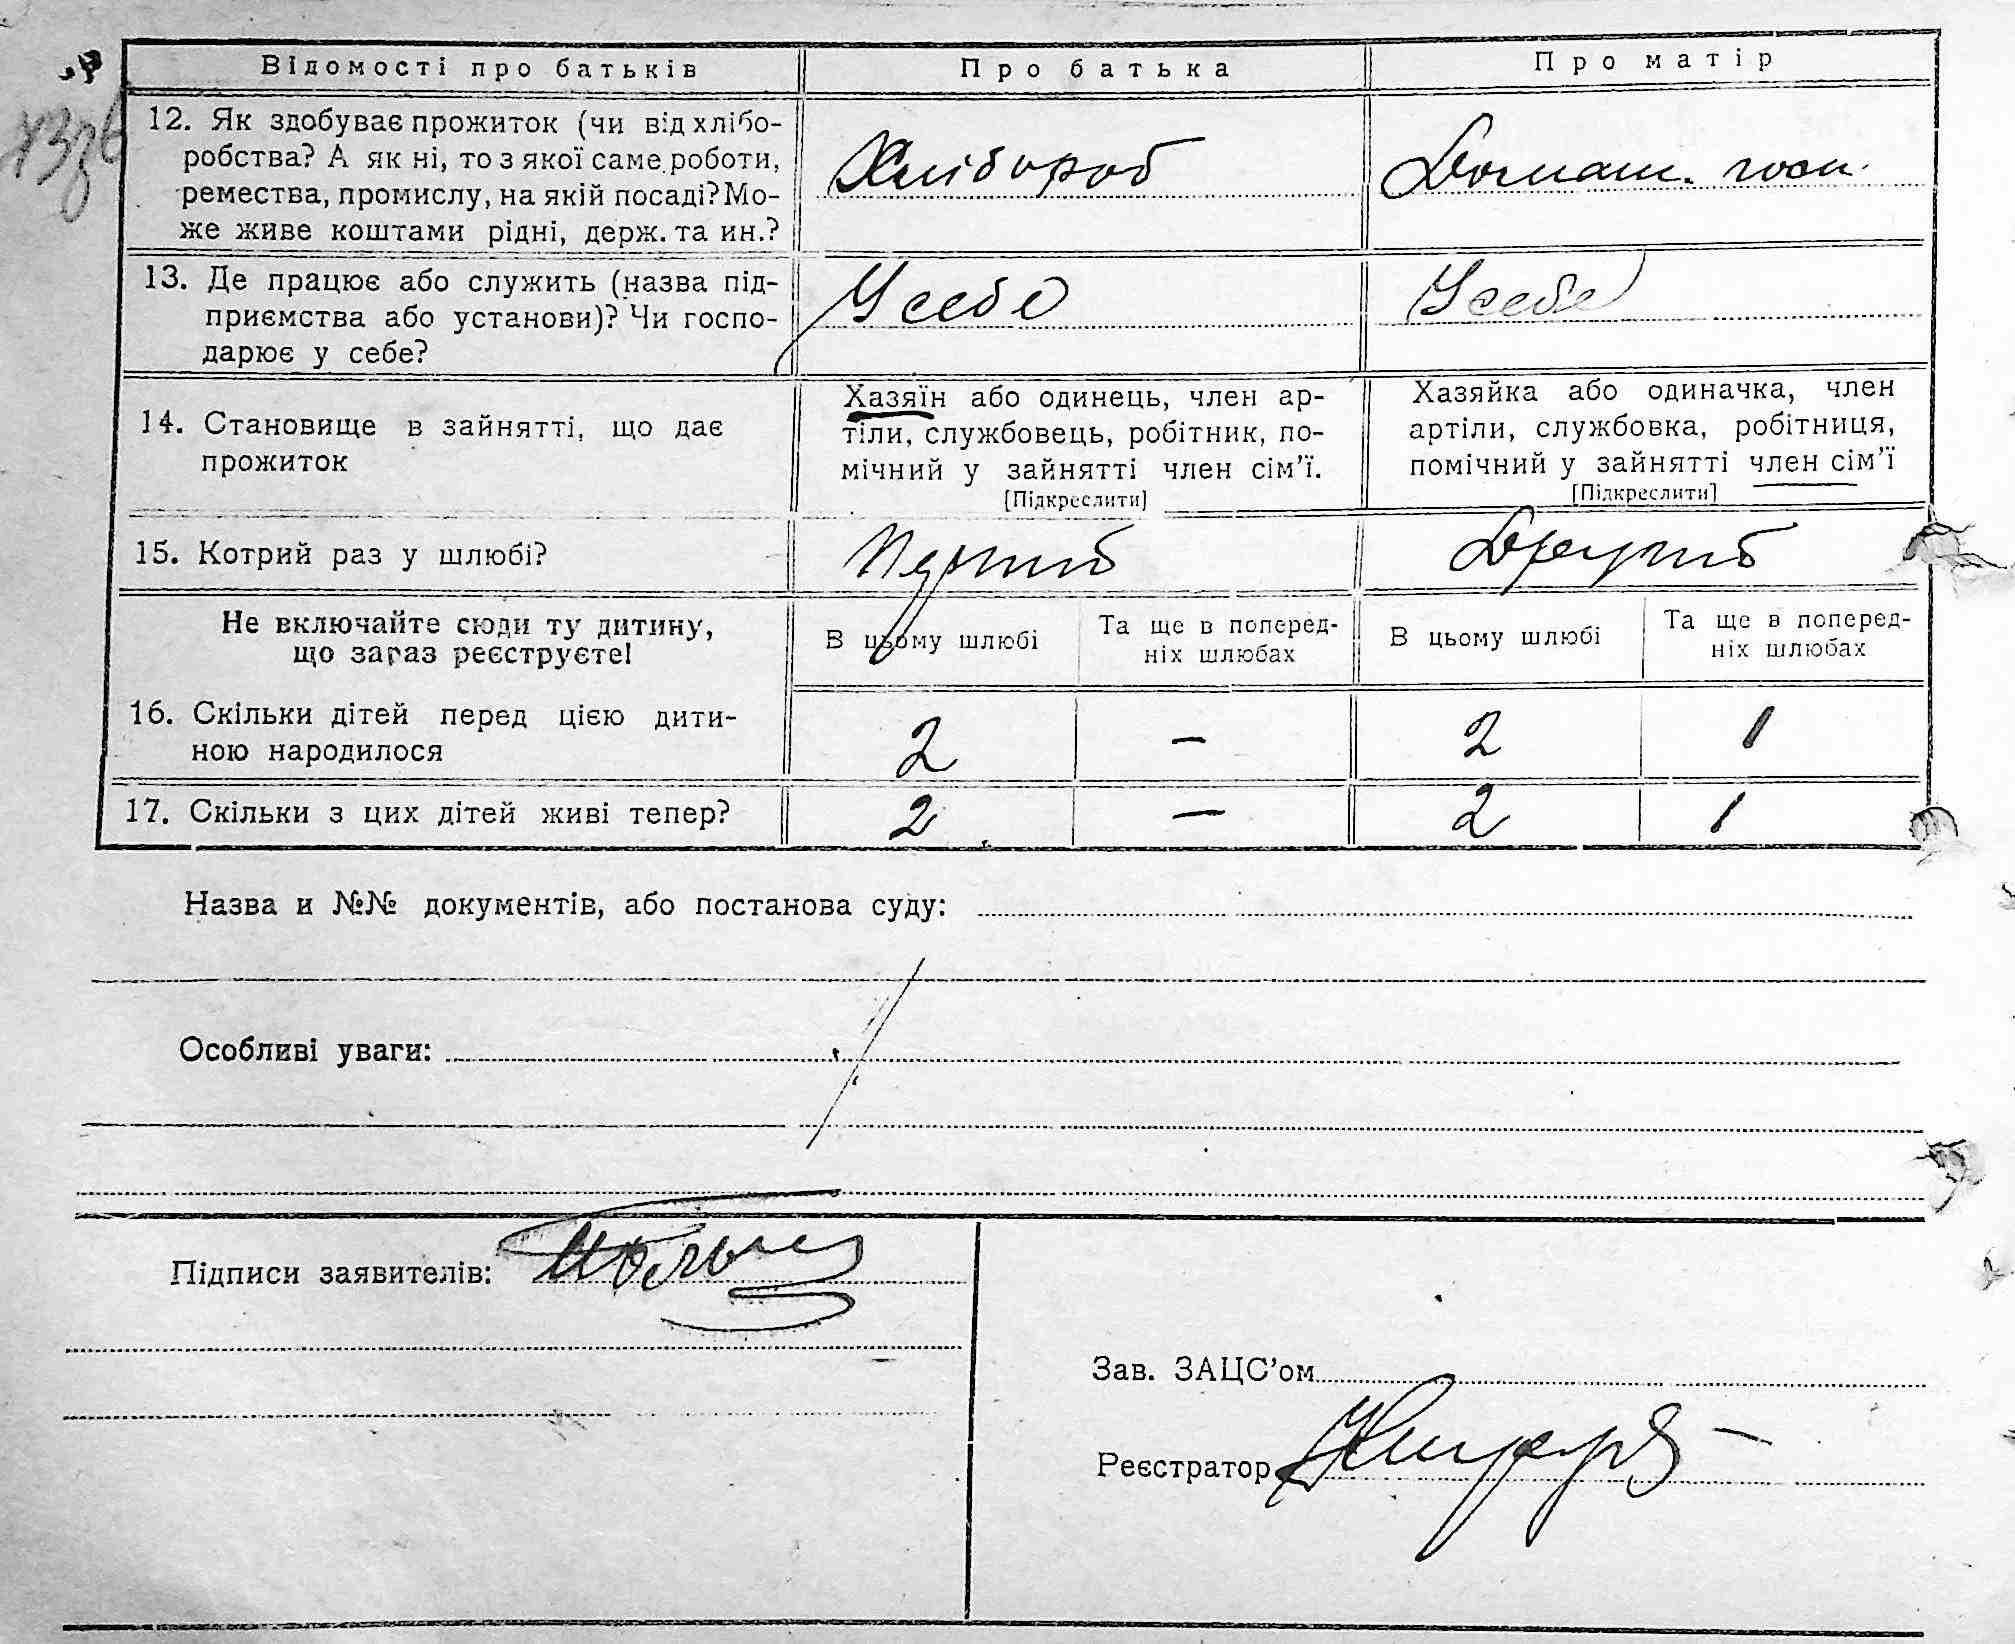 Відомості про батьків
Про батька
Про матір
12. Як здобуває прожиток (чи від хлібо-
робства? А як ні, то з якої саме роботи,
ремества, промислу, на якій посаді? Мо-
же живе коштами рідні, держ. та ин.?
Хлібороб
Домаш. госп.
13. Де працює або служить (назва під-
приємства або установи)? Чи госпо-
дарює у себе?
У себе
У себе
14. Становище в зайнятті, що дає
прожиток
Хазяїн або одинець, член ар-
тіли, службовець, робітник, по-
мічний у зайнятті член сім'ї.
[Підкреслити]
Хазяйка або одиначка, член
артіли, службовка, робітниця,
помічний у зайнятті член сім'ї
[Підкреслити]
15. Котрий раз у шлюбі?
Другий
Не включайте сюди ту дитину,
що зараз реєструєте!
В цьому шлюбі
Та ще в поперед-
ніх шлюбах
В цьому шлюбі
Та ще в поперед-
ніх шлюбах
16. Скільки дітей перед цією дити-
ною народилося
2 – 2 1
17. Скільки з цих дітей живі тепер?
2 – 2 1
Назва и №№ документів, або постанова суду:
Особливі уваги:
Підписи заявителів:
Зав. ЗАЦС'ом
Реєстратор